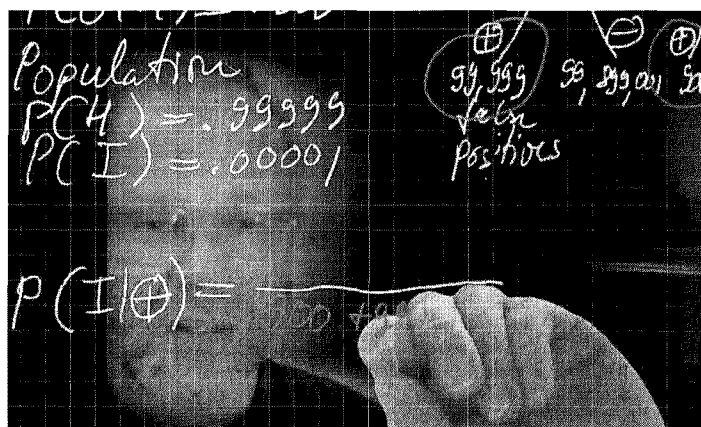 Population
P(H) = .99999
P(I) = .00001
⊕ ⊖ ⊕
99,999 99,899,001
false
positives
P(I|⊕) =